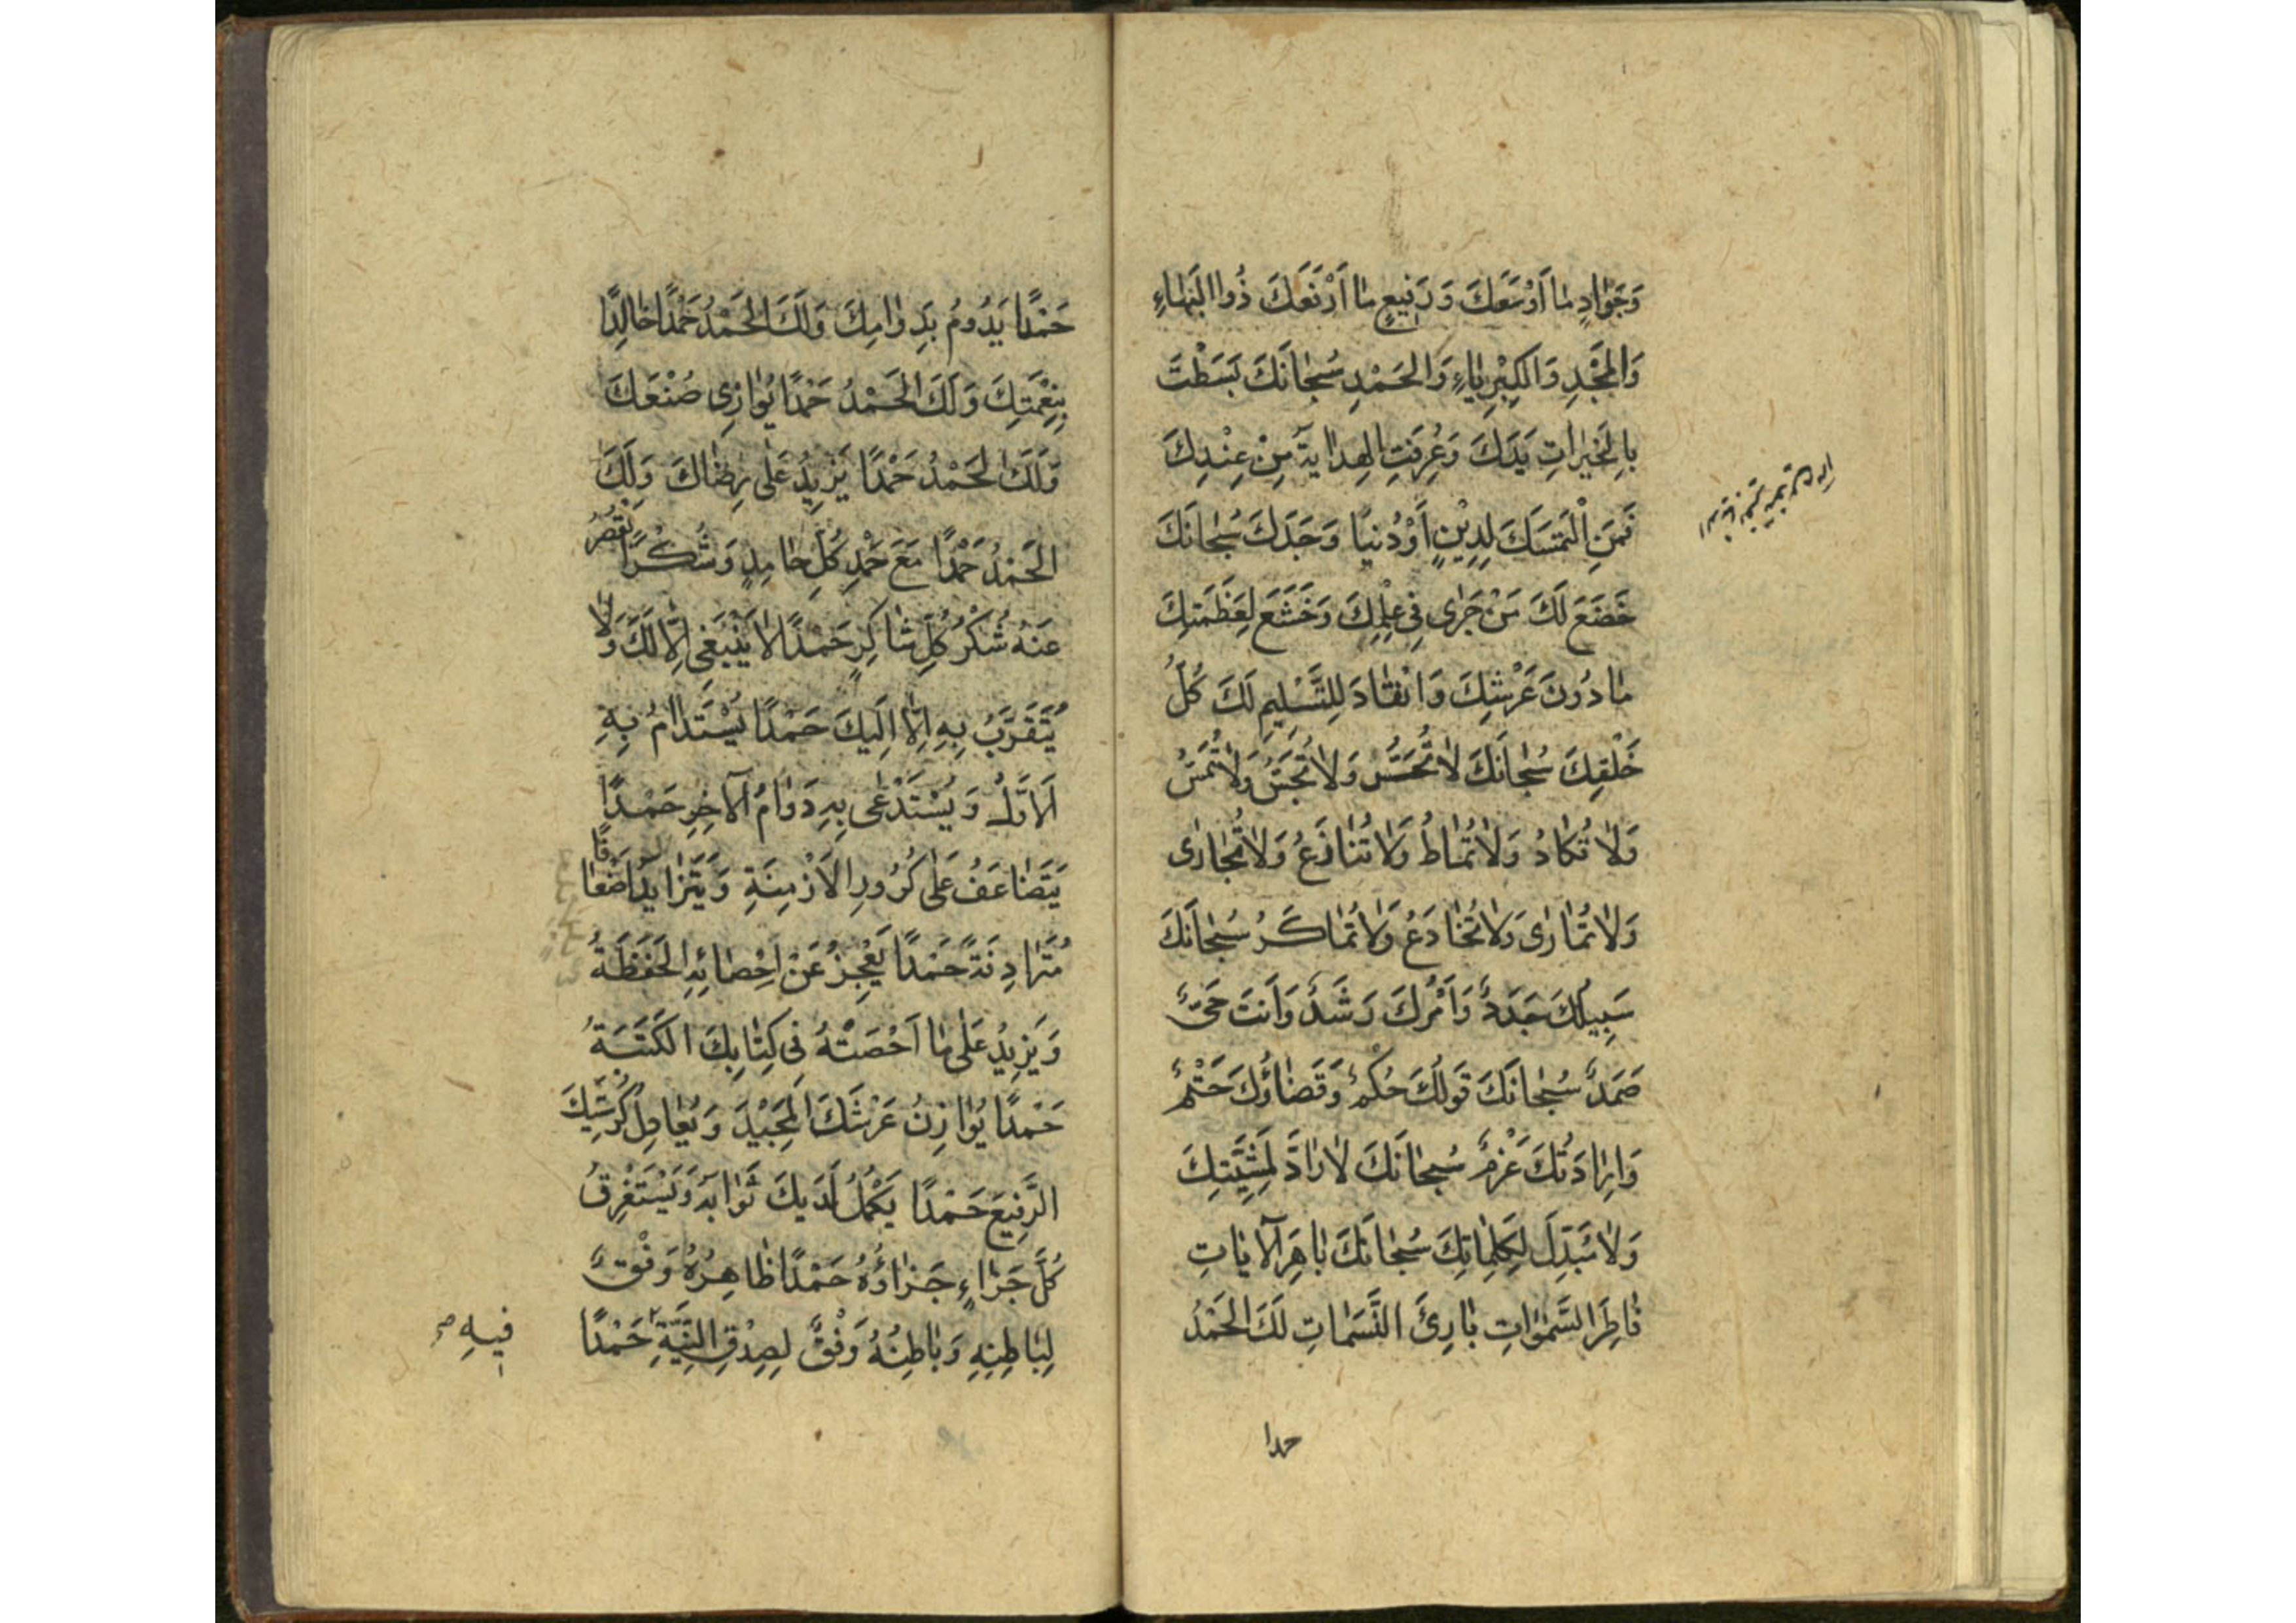 وَجَوَادٍ مَا أَوْسَعَكَ وَرَفِيعٍ مَا أَرْفَعَكَ ذُو الْبَهَاءِ
وَالْمَجْدِ وَالْكِبْرِيَاءِ وَالْحَمْدِ سُبْحَانَكَ بَسَطْتَ
بِالْخَيْرَاتِ يَدَكَ وَعُرِفَتِ الْهِدَايَةُ مِنْ عِنْدِكَ
فَمَنِ الْتَمَسَكَ لِدِيْنٍ أَوْ دُنْيَا وَجَدَكَ سُبْحَانَكَ
خَضَعَ لَكَ مَنْ جَرَى فِي عِلْمِكَ وَخَشَعَ لِعَظَمَتِكَ
مَا دُونَ عَرْشِكَ وَانْقَادَ لِلتَّسْلِيمِ لَكَ كُلُّ
خَلْقِكَ سُبْحَانَكَ لَا تُحَسُّ وَلَا تُجَسُّ وَلَا تُمَسُّ
وَلَا تُكَادُ وَلَا تُمَاطُ وَلَا تُنَازَعُ وَلَا تُجَارَى
وَلَا تُمَارَى وَلَا تُخَادَعُ وَلَا تُمَاكَرُ سُبْحَانَكَ
سَبِيلُكَ جَدَدٌ وَأَمْرُكَ رَشَدٌ وَأَنْتَ حَيٌّ
صَمَدٌ سُبْحَانَكَ قَوْلُكَ حُكْمٌ وَقَضَاؤُكَ حَتْمٌ
وَإِرَادَتُكَ عَزْمٌ سُبْحَانَكَ لَا رَادَّ لِمَشِيَّتِكَ
وَلَا مُبَدِّلَ لِكَلِمَاتِكَ سُبْحَانَكَ بَاهِرَ الْآيَاتِ
فَاطِرَ السَّمٰوَاتِ بَارِئَ النَّسَمَاتِ لَكَ الْحَمْدُ
حمدا
حَمْدًا يَدُومُ بِدَوَامِكَ وَلَكَ الْحَمْدُ حَمْدًا خَالِدًا
بِنِعْمَتِكَ وَلَكَ الْحَمْدُ حَمْدًا يُوَازِي صُنْعَكَ
وَلَكَ الْحَمْدُ حَمْدًا يَزِيدُ عَلَى رِضَاكَ وَلَكَ
الْحَمْدُ حَمْدًا مَعَ حَمْدِ كُلِّ حَامِدٍ وَشُكْرًا يَقْصُرُ
عَنْهُ شُكْرُ كُلِّ شَاكِرٍ حَمْدًا لَا يَنْبَغِي إِلَّا لَكَ وَلَا
يُتَقَرَّبُ بِهِ إِلَّا إِلَيْكَ حَمْدًا يُسْتَدَامُ بِهِ
الْأَوَّلُ وَيُسْتَدْعَى بِهِ دَوَامُ الْآخِرِ حَمْدًا
يَتَضَاعَفُ عَلَى كُرُورِ الْأَزْمِنَةِ وَيَتَزَايَدُ أَضْعَافًا
مُتَرَادِفَةً حَمْدًا يَعْجِزُ عَنْ إِحْصَائِهِ الْحَفَظَةُ
وَيَزِيدُ عَلَى مَا أَحْصَتْهُ فِي كِتَابِكَ الْكَتَبَةُ
حَمْدًا يُوَازِنُ عَرْشَكَ الْمَجِيْدَ وَيُعَادِلُ كُرْسِيَّكَ
الرَّفِيعَ حَمْدًا يَكْمُلُ لَدَيْكَ ثَوَابُهُ وَيَسْتَغْرِقُ
كُلَّ جَزَاءٍ جَزَاؤُهُ حَمْدًا ظَاهِرُهُ وَفْقٌ
لِبَاطِنِهِ وَبَاطِنُهُ وَفْقٌ لِصِدْقِ النِّيَّةِ حَمْدًا
فِيهِ صح